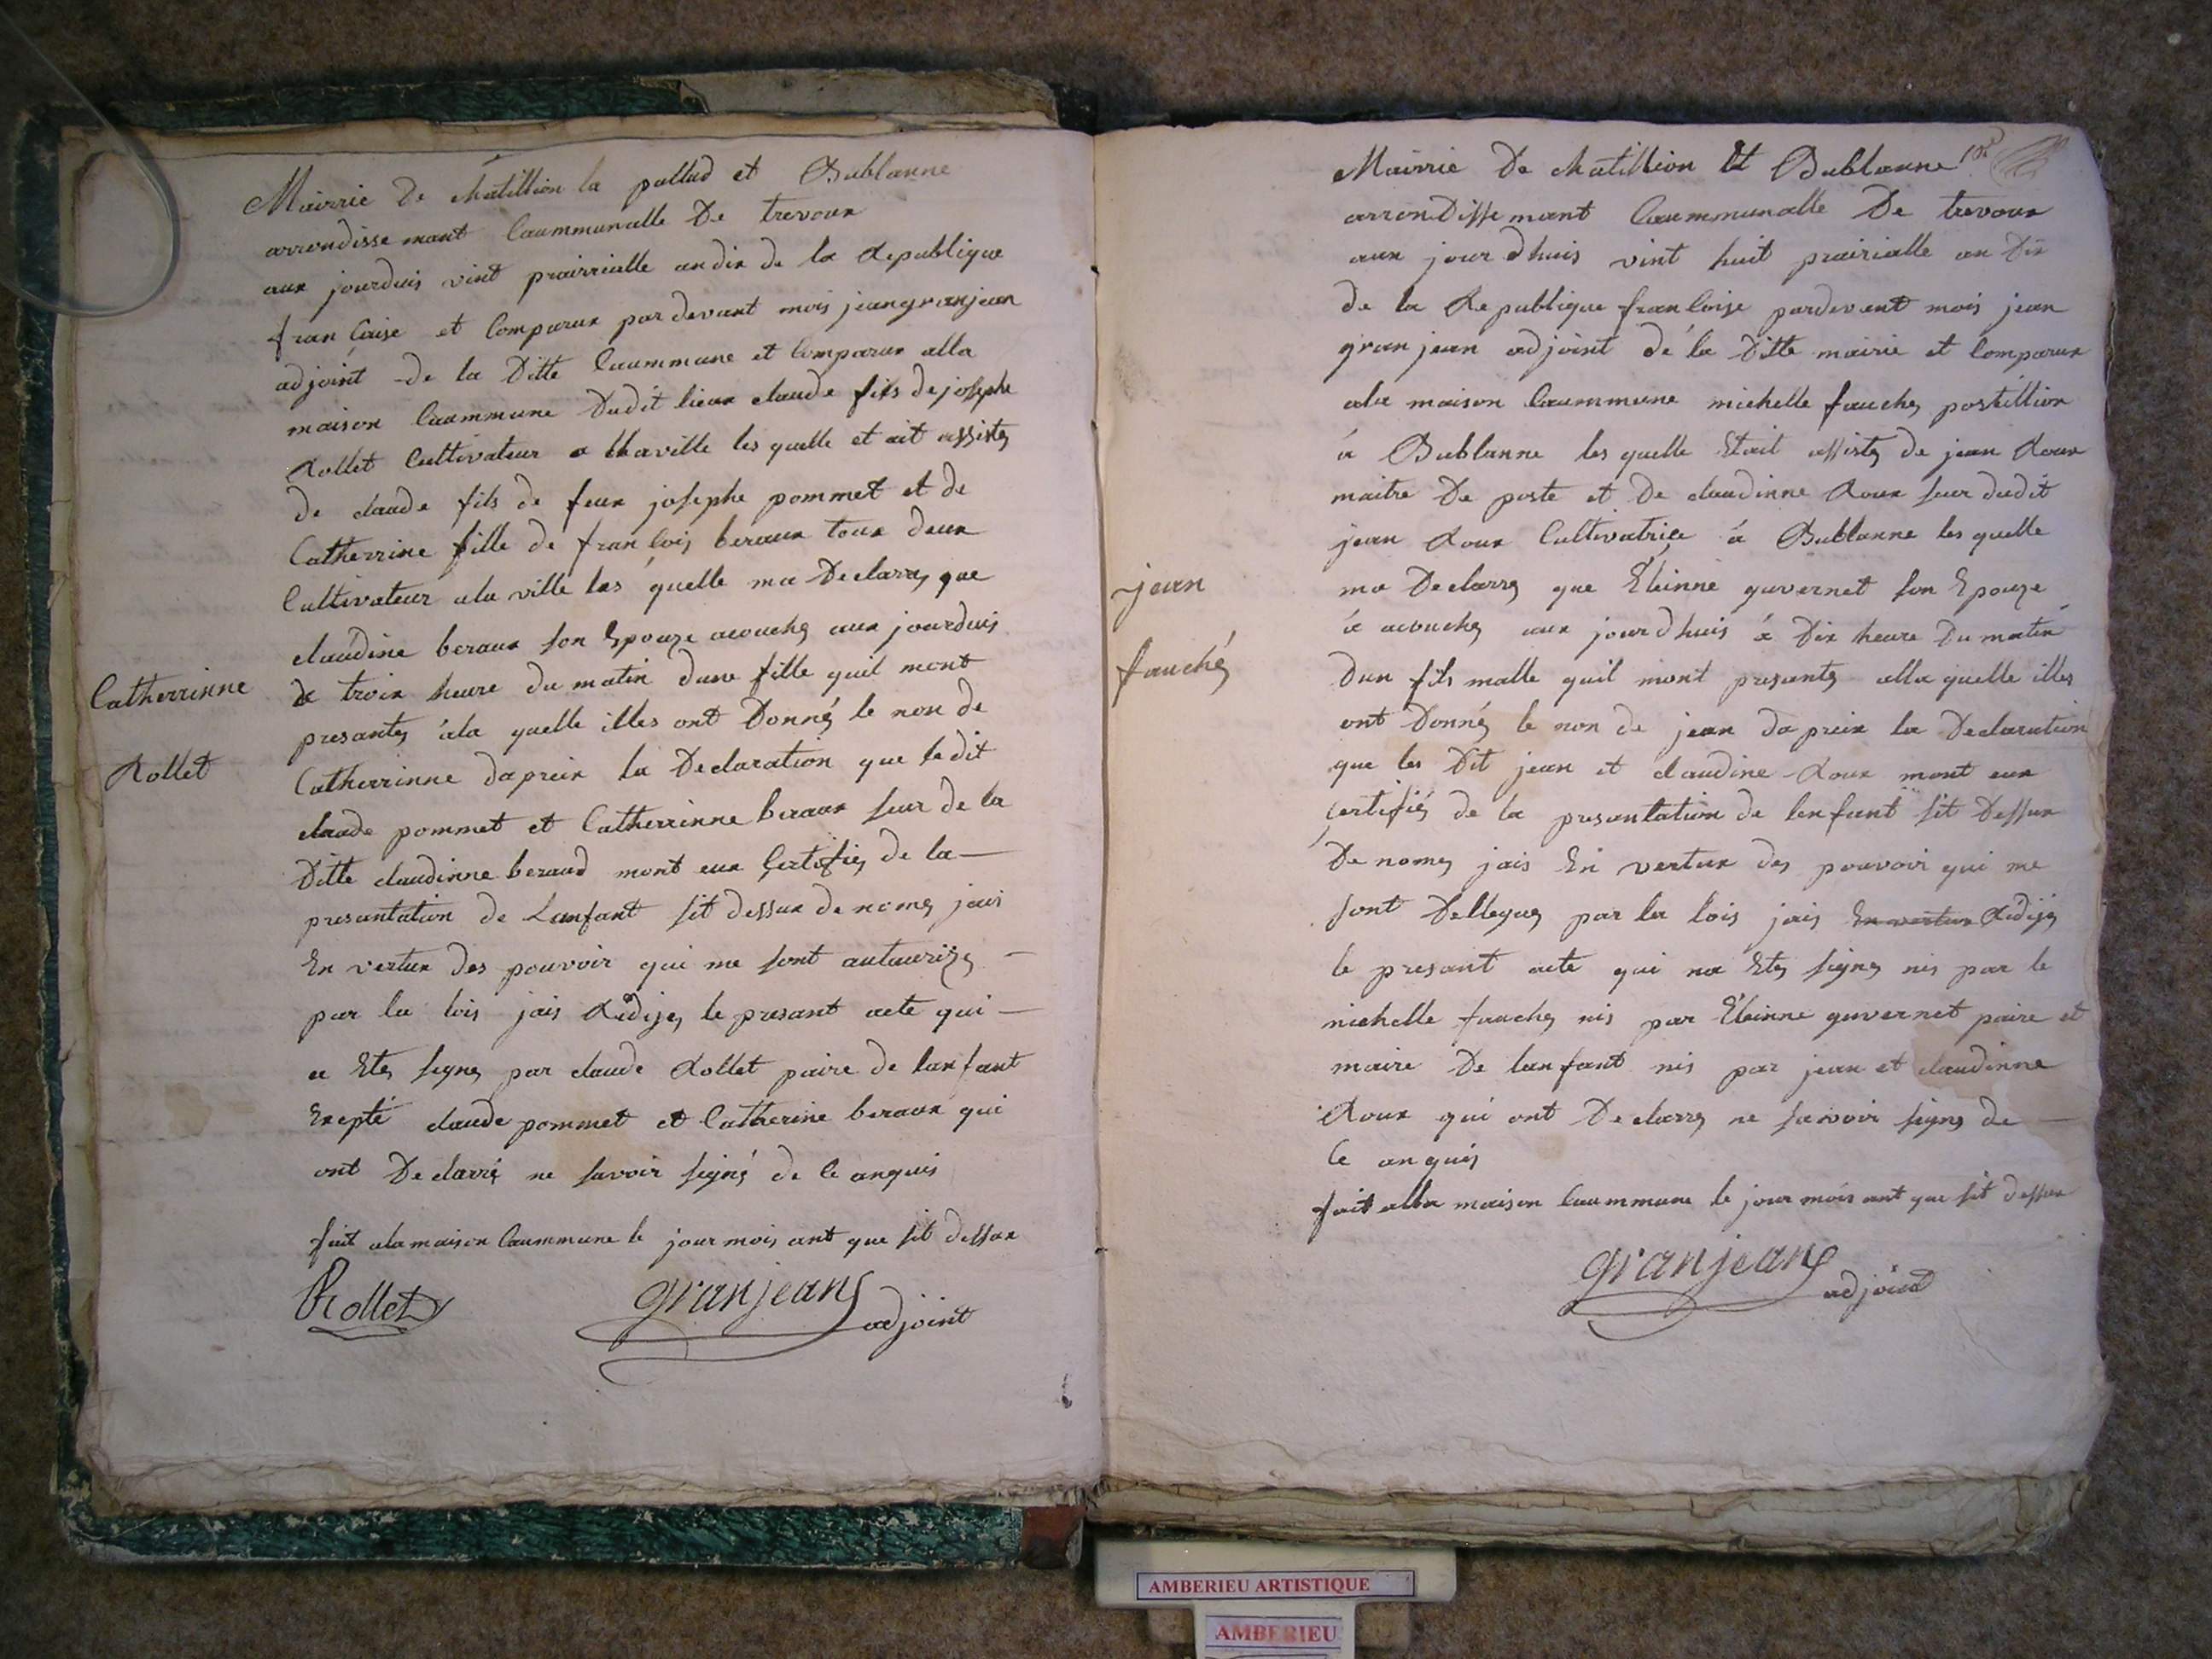 Mairrie De chatillion la pallud et Bublanne
arrondissemant Caummunalle De trevoux
aux jourduis vint prairrialle an dix de la Republique
francaise et Comparux pardevant mois jeangranjean
adjoint de la Ditte Caummune et Comparux alla
maison Caummune Dudit lieux claude fils de josephe
Rollet Cultivateur a laville les quelle et ait assistéz
de claude fils de feux josephe pommet et de
Catherrine fille de francois beraux toux deux
Cultivateur ala ville les quelle ma Declarréz que
claudine beraux son Epouze acouchez aux jourduis
de troix heure du matin dune fille quil mont
presantéz ala quelle illes ont Donnéz le non de
Catherrinne daprix la Declaration que ledit
claude pommet et Catherrinne beraux seur de la
Ditte claudinne beraud mont eux Certifiéz de la —
presantation de Lanfant sit dessux denoméz jais
En vertux des pouvoir qui me sont autaurizéz —
par la lois jais Redijéz le presant acte qui —
a Etéz signéz par claude Rollet paire de lanfant
Exepté claude pommet et Catherine beraux qui
ont Declarré ne savoir signé de Ce anquis
fait ala maison Caummune le jour mois ant que sit dessux
Catherrinne
Rollet
Rollet
granjean adjoint
Mairrie De chatillion et Bublanne
arrondissemant Caummunalle De trevoux
aux jourdhuis vint huit prairialle an Dix
de la Republique francoise pardevent mois jean
granjean adjoint de la Ditte mairie et Comparux
ala maison Caummune michelle fauchez postillion
à Bublanne les quelle Etait assistéz de jean Roux
maitre De poste et De claudinne Roux seur dudit
jean Roux Cultivatrice à Bublanne les quelle
ma Declarréz que Eteinne guvernet son Epouze
à acouchez aux jourdhuis à Dix heure Du matin
Dun fils malle quil mont presantéz alla quelle illes
ont Donnéz le non de jean daprix la Declaration
que les Dit jean et claudine Roux mont eux
Certifiés de la presantation de lenfant sit Dessux
De noméz jais En vertux des pouvoir qui me
sont Delleguéz par la lois jais En vertux Redijéz
le presant acte qui na Etéz signéz nis par le
michelle fauchez nis par Eteinne guvernet paire et
maire De lanfant nis par jean et claudinne
Roux qui ont Declarréz ne savoir signéz de —
Ce anquis
fait alla maison Caummune le jour mois ant que sit dessux
jean
fauchéz
granjean adjoint
AMBERIEU ARTISTIQUE
AMBERIEU